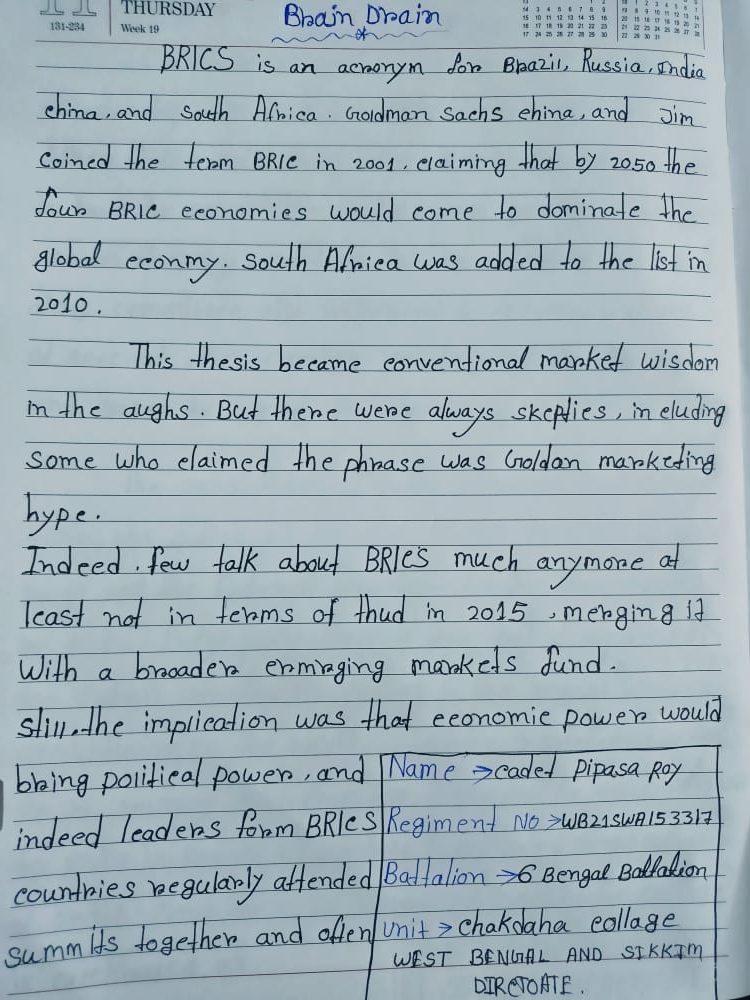 THURSDAY
131-234
Week 19
Brain Drain
BRICS is an acronym for Brazil, Russia, India
china, and south Africa. Goldman sachs china, and Jim
coined the term BRIC in 2001, claiming that by 2050 the
four BRIC economies would come to dominate the
global econmy. south Africa was added to the list in
2010.
This thesis became conventional market wisdom
in the aughs. But there were always skepties, in cluding
some who claimed the phrase was Goldan marketing
hype.
Indeed. few talk about BRICS much anymore at
least not in terms of thud in 2015, merging it
With a broader ermrging markets fund.
still, the implication was that economic power would
bring political power, and
indeed leaders form BRICS
countries regularly attended
summits together and often
Name → cadet Pipasa Roy
Regiment No → WB21SWA153317
Battalion → 6 Bengal Battalion
unit → chakdaha collage
WEST BENGAL AND SIKKIM
DIRCTOATE.